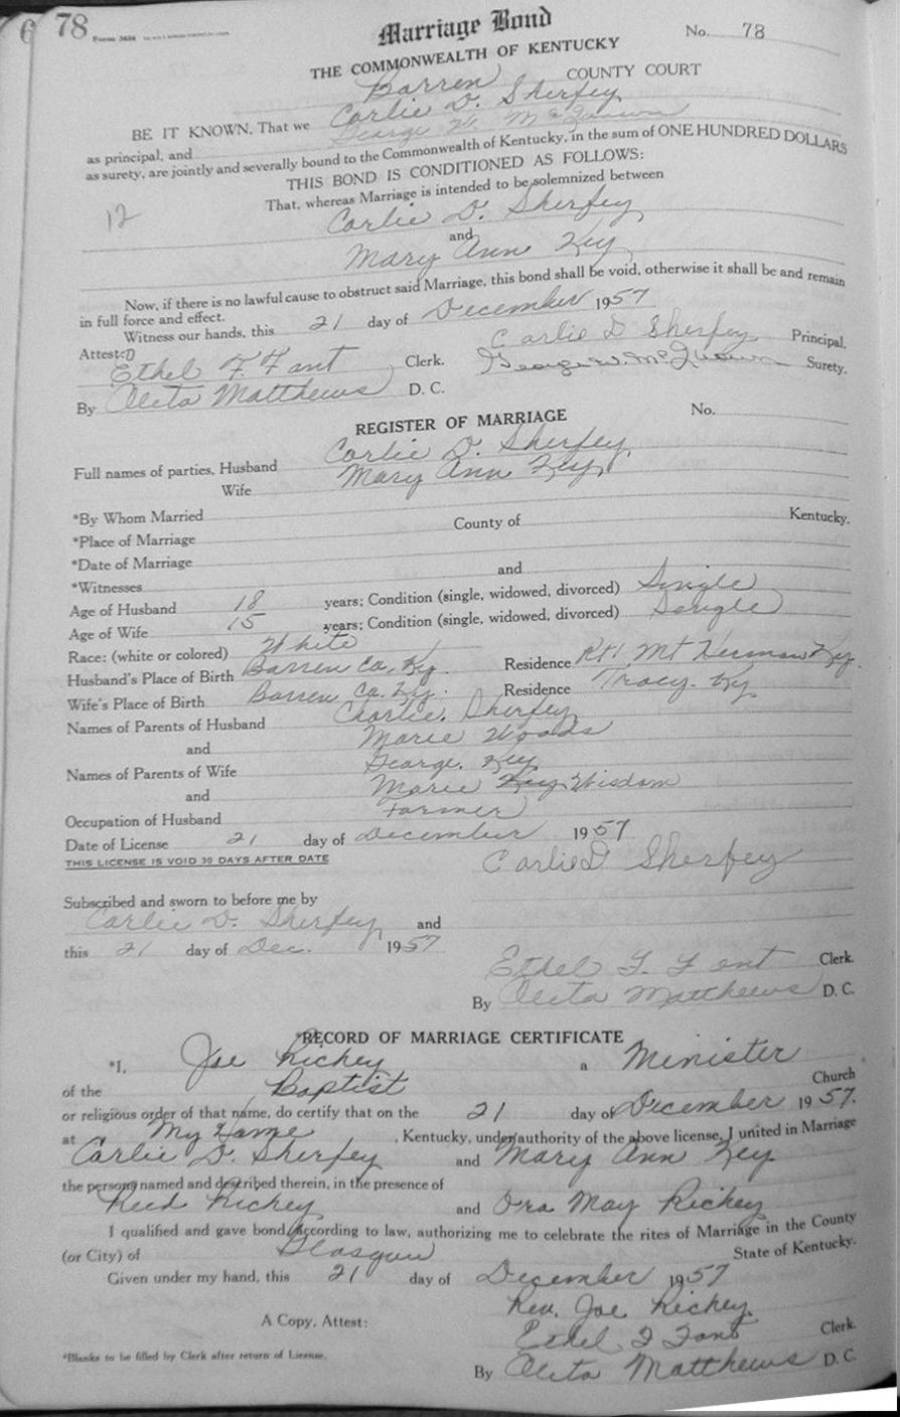 6 78 Form 3636
Marriage Bond
No. 78
THE COMMONWEALTH OF KENTUCKY
Barren COUNTY COURT
BE IT KNOWN, That we Carlie D. Sherfey
as principal, and George W. McQuown
as surety, are jointly and severally bound to the Commonwealth of Kentucky, in the sum of ONE HUNDRED DOLLARS
THIS BOND IS CONDITIONED AS FOLLOWS:
That, whereas Marriage is intended to be solemnized between
12
Carlie D. Sherfey
and
Mary Ann Key
Now, if there is no lawful cause to obstruct said Marriage, this bond shall be void, otherwise it shall be and remain
in full force and effect.
Witness our hands, this 21 day of December 1957
Attest: Carlie D Sherfey Principal.
Ethel F. Fant Clerk. George W. McQuown Surety.
By Oleta Matthews D. C.
REGISTER OF MARRIAGE No.
Full names of parties, Husband Carlie D. Sherfey
Wife Mary Ann Key
*By Whom Married
*Place of Marriage County of Kentucky.
*Date of Marriage
*Witnesses and
Age of Husband 18 years; Condition (single, widowed, divorced) Single
Age of Wife 15 years; Condition (single, widowed, divorced) Single
Race: (white or colored) White
Husband's Place of Birth Barren Co, Ky. Residence R#1 Mt Herman Ky.
Wife's Place of Birth Barren Co. Ky. Residence Tracy. Ky
Names of Parents of Husband Charlie. Sherfey
and Marie Woods
Names of Parents of Wife George. Key
and Marie Key Wisdom
Occupation of Husband Farmer
Date of License 21 day of December 1957
THIS LICENSE IS VOID 30 DAYS AFTER DATE
Carlie D Sherfey
Subscribed and sworn to before me by
Carlie D. Sherfey and
this 21 day of Dec. 1957
Ethel F. Fant Clerk.
By Oleta Matthews D. C.
*RECORD OF MARRIAGE CERTIFICATE
*I, Joe Richey a Minister
of the Baptist Church
or religious order of that name, do certify that on the 21 day of December 1957.
at My Home, Kentucky, under authority of the above license, I united in Marriage
Carlie D. Sherfey and Mary Ann Key
the persons named and described therein, in the presence of
Reed Richey and Ora May Richey
I qualified and gave bond, according to law, authorizing me to celebrate the rites of Marriage in the County
(or City) of Glasgow State of Kentucky.
Given under my hand, this 21 day of December 1957
Rev. Joe Richey.
A Copy, Attest: Ethel F Fant Clerk.
*Blanks to be filled by Clerk after return of License.
By Oleta Matthews D. C.